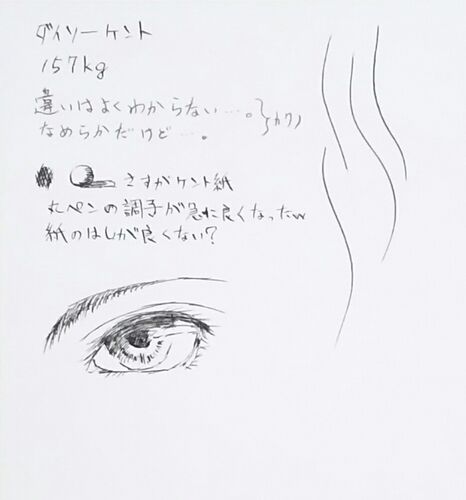 ダイソーケント
157kg
違いはよくわからない…。
なめらかだけど…。
カクノ
さすがケント紙
丸ペンの調子が急に良くなったw
紙のはしが良くない?